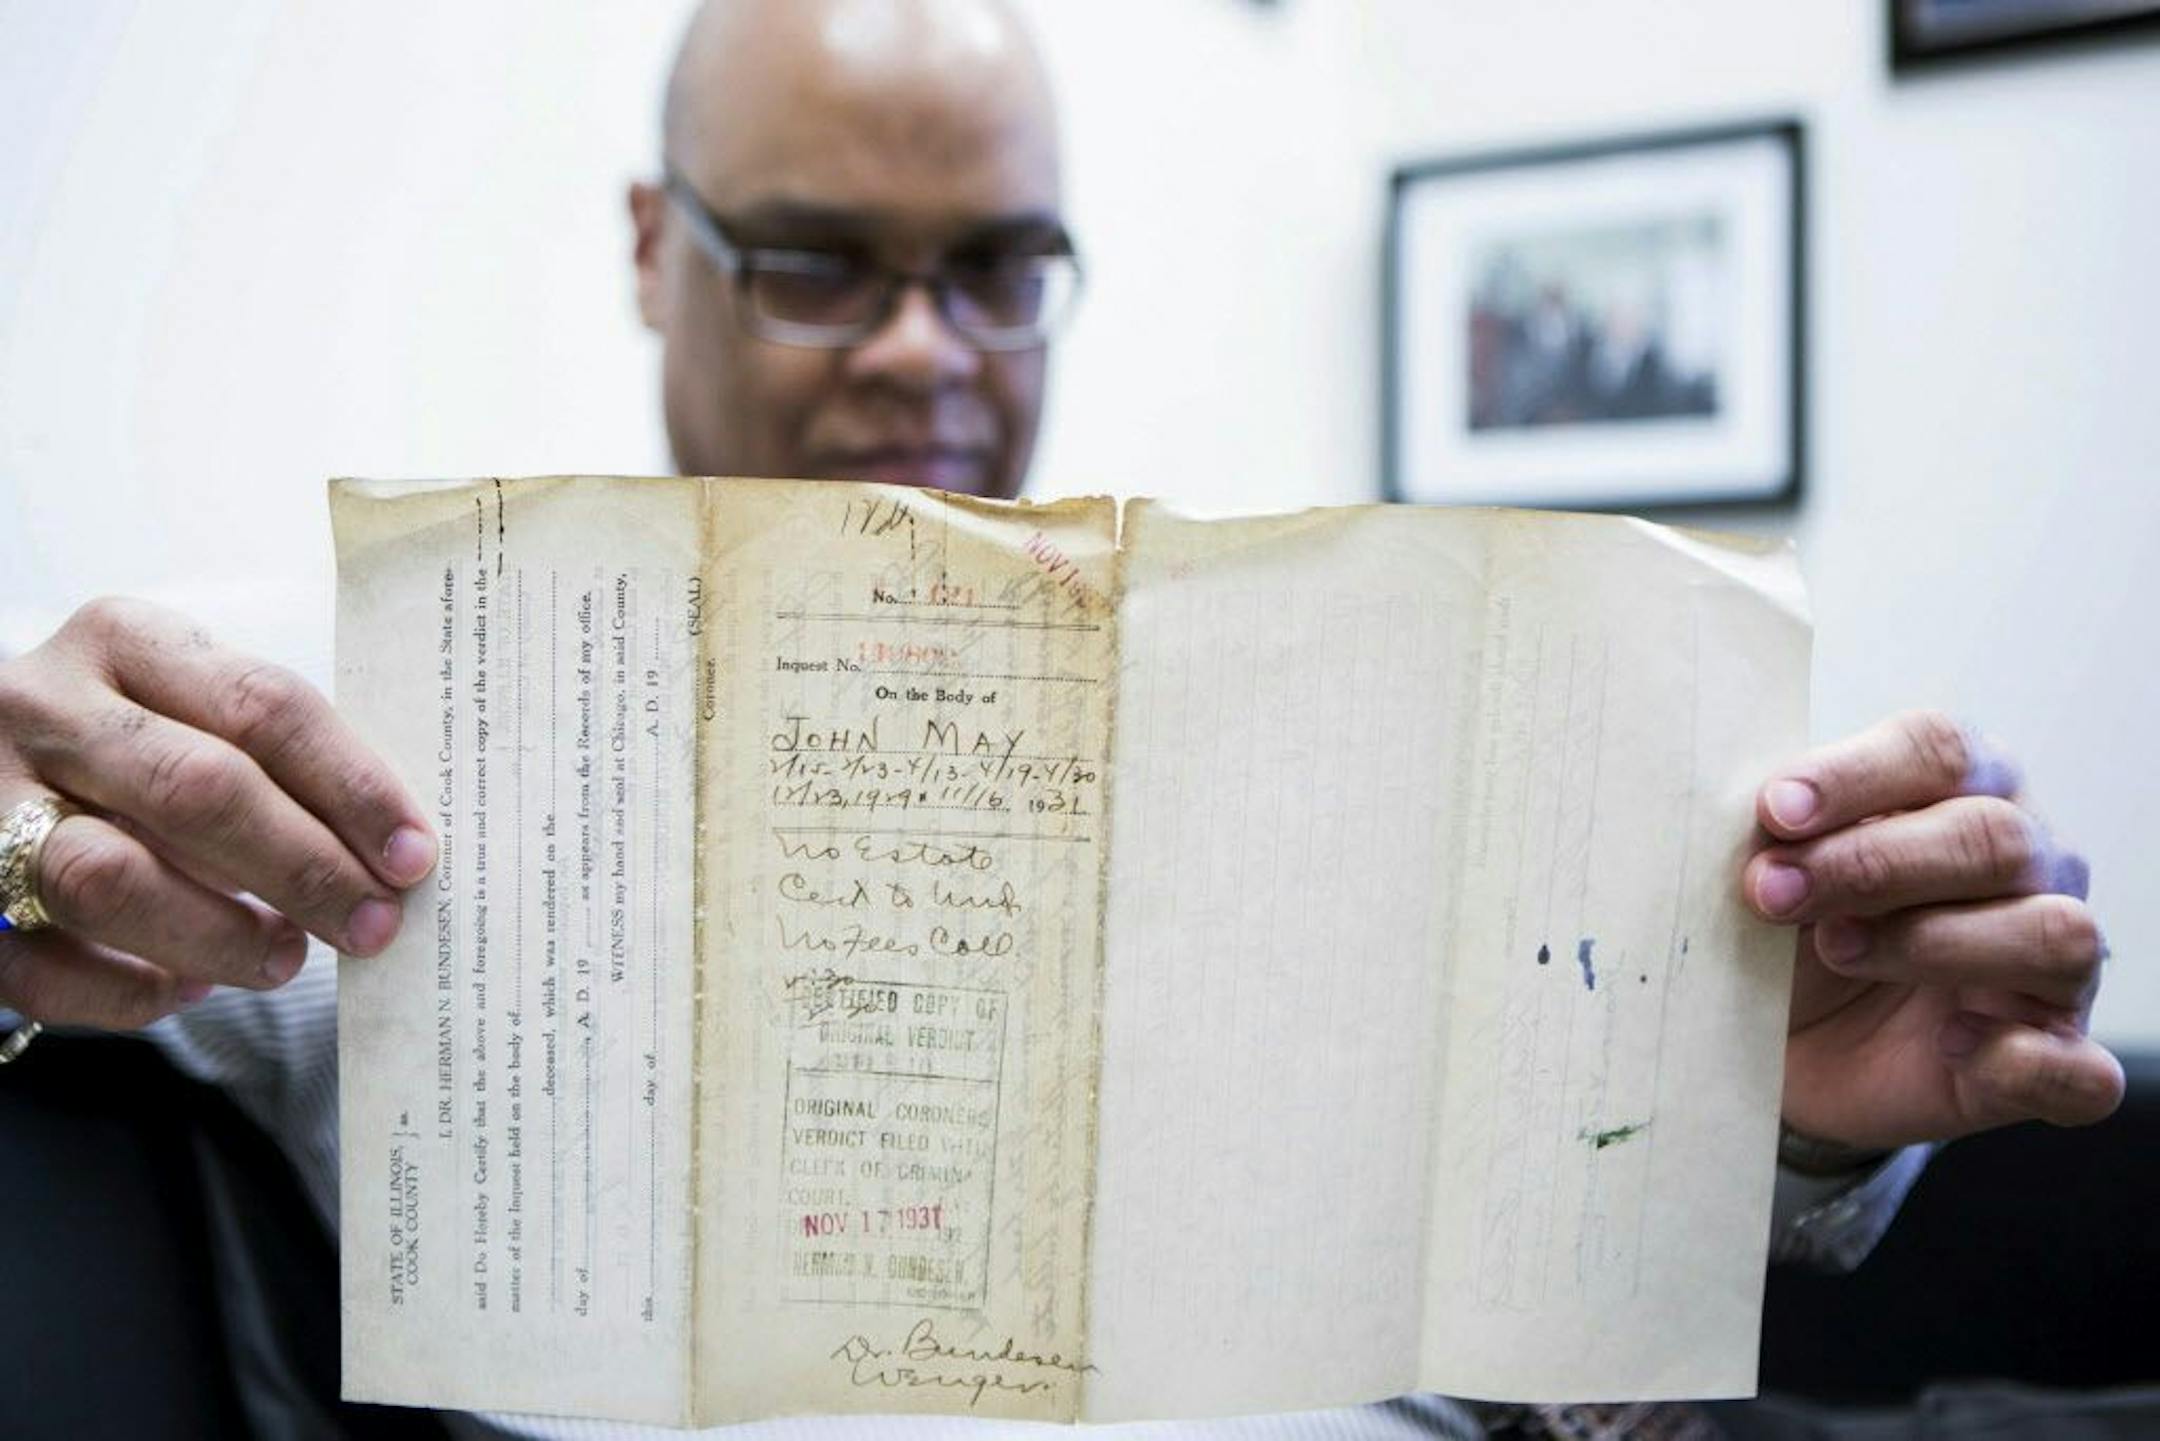 STATE OF ILLINOIS,
COOK COUNTY } ss.
I, DR. HERMAN N. BUNDESEN, Coroner of Cook County, in the State afore-
said Do Hereby Certify that the above and foregoing is a true and correct copy of the verdict in the
matter of the Inquest held on the body of
deceased, which was rendered on the
day of A. D. 19 as appears from the Records of my office.
WITNESS my hand and seal at Chicago, in said County,
this day of A. D. 19
(SEAL)
Coroner.
NOV 1
No.
Inquest No.
On the Body of
JOHN MAY
2/15-2/23-4/13-4/19-4/30
12/23, 1929 11/16 1931
No Estate
No Fees Coll.
CERTIFIED COPY OF
ORIGINAL VERDICT
ORIGINAL CORONERS
VERDICT FILED WITH
CLERK OF CRIMINAL
COURT.
NOV 17 1931 192
HERMAN N. BUNDESEN,
CORONER
Dr. Bundesen
Wenger.